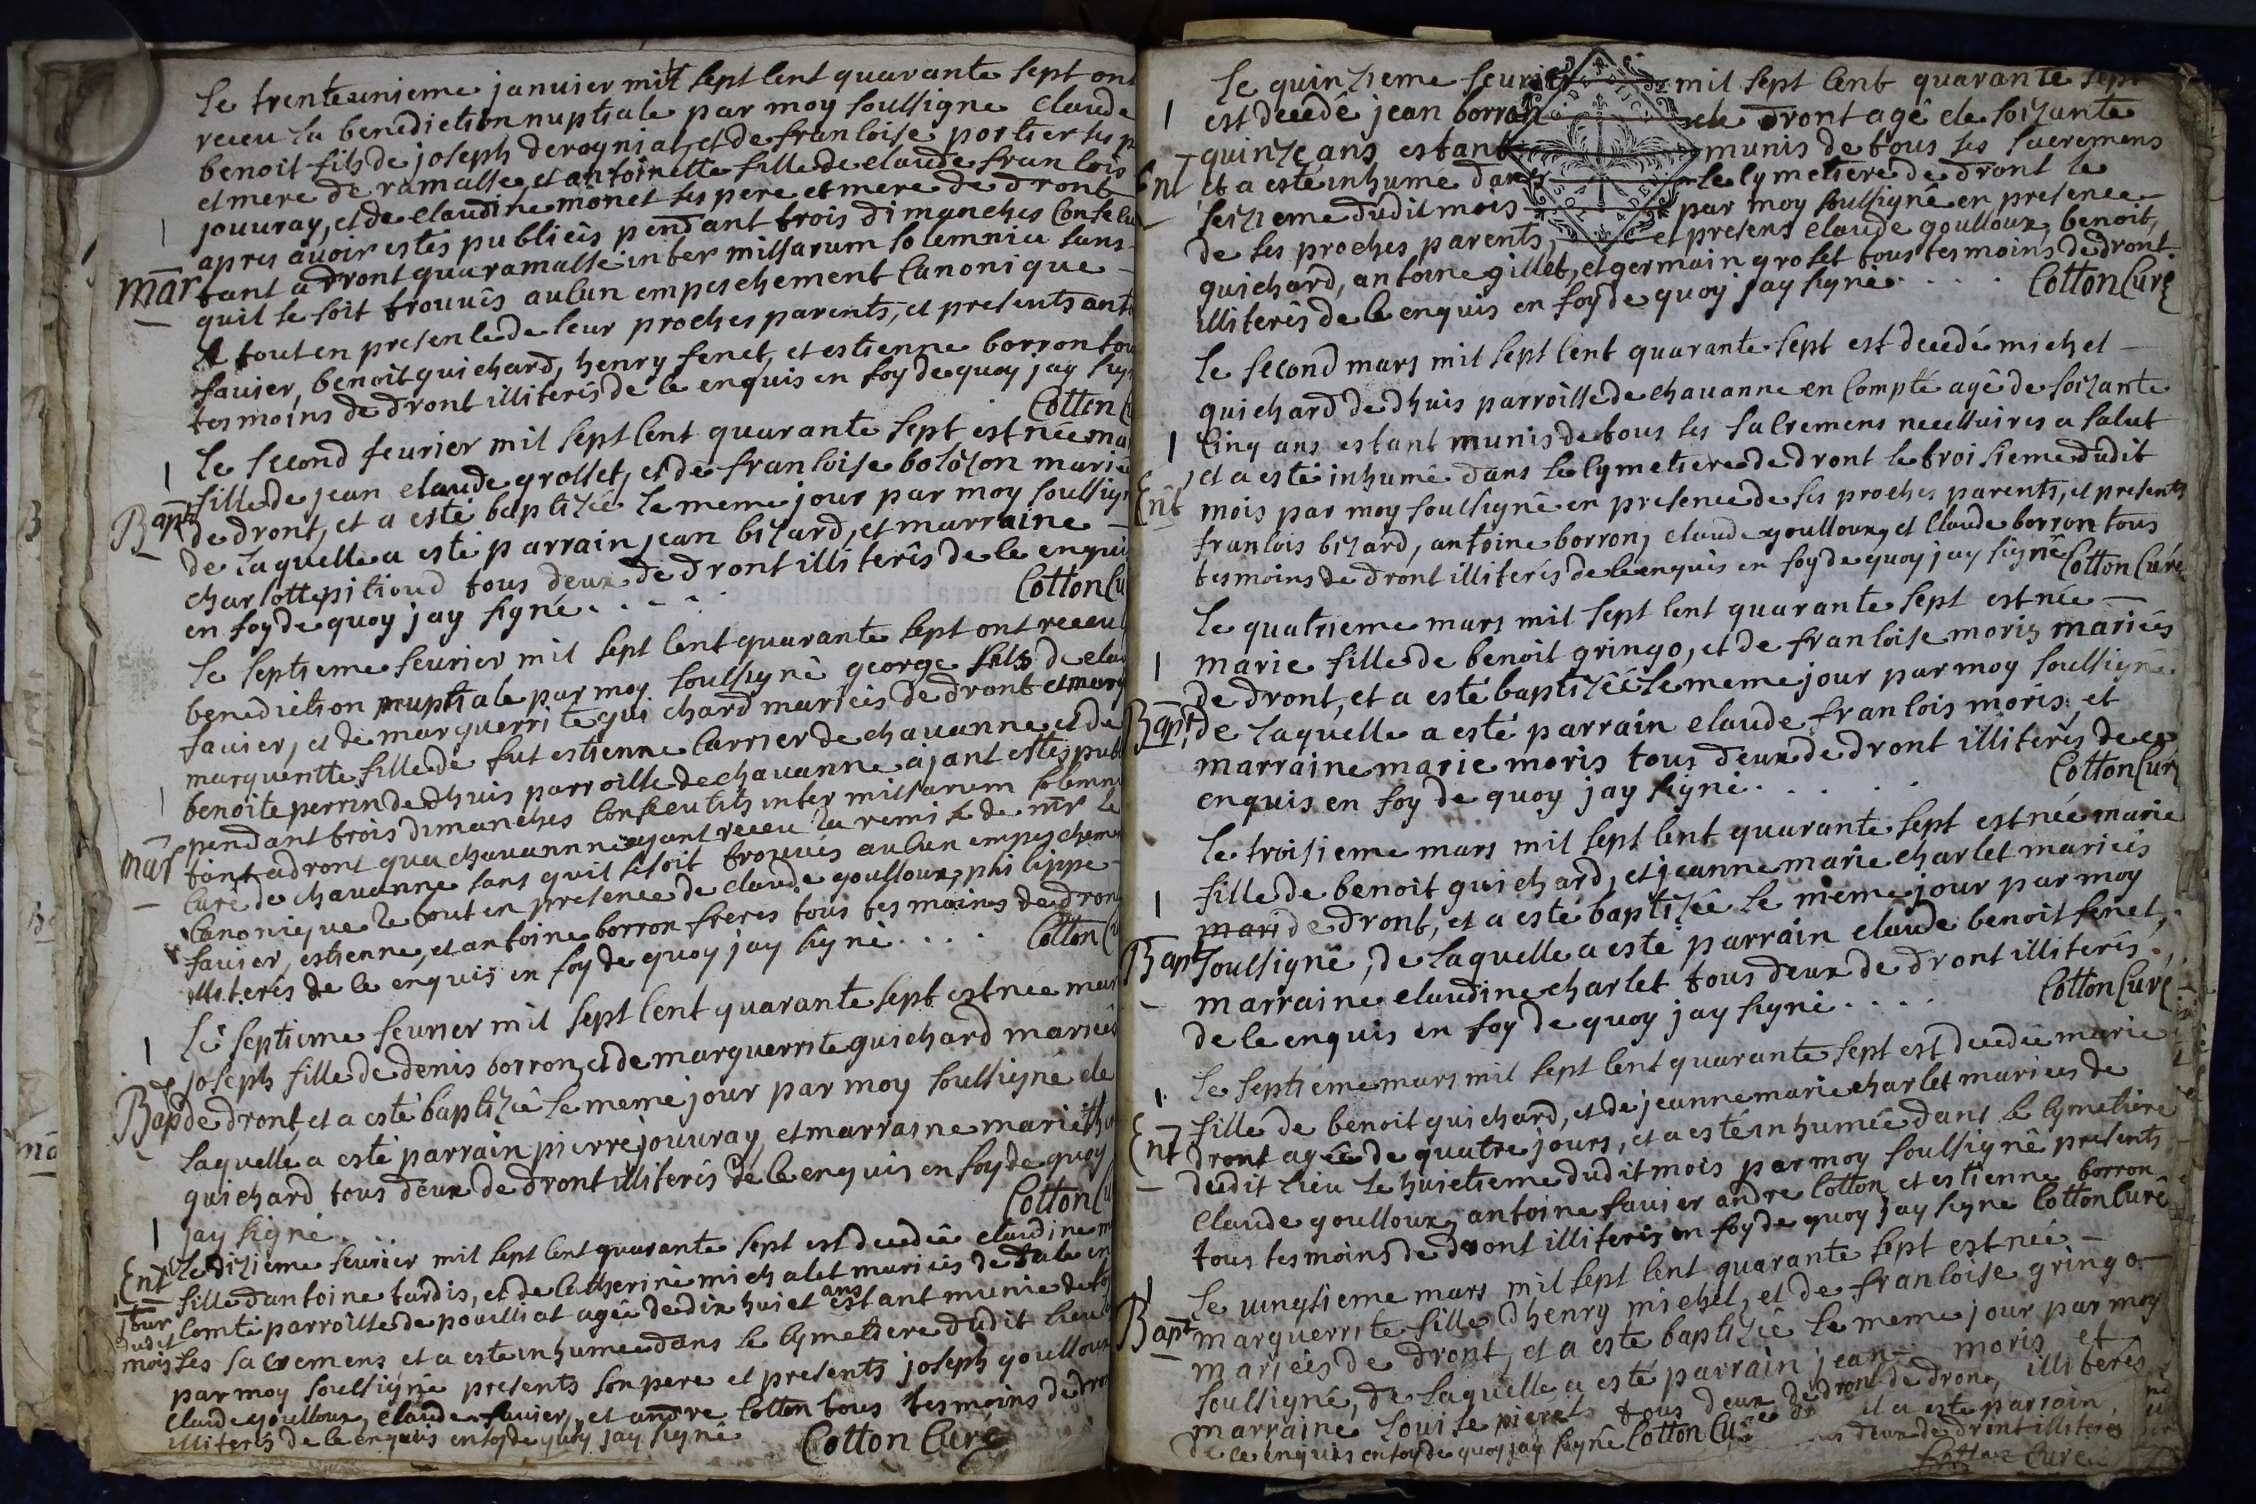 Le trenteunieme januier mil sept cent quarante sept ont
receu la benediction nuptiale par moy soussigne claude
benoit fils de joseph derognial, et de francoise portier ses p
et mere de ramasse, et antoinette fille de claude francois
jouuray, et de claudine monet ses pere et mere de dront
apres auoir estés publieés pendant trois dimanches consecu
Mar̄ tant a dront qua ramasse inter missarum solemnia sans
quil se soit trouués aucun empeschement canonique –
le tout en presence de leur proches parents, et presents anto
fauier, benoit guichard, henry fenet, et estienne borron tous
tesmoins de dront illiterés de ce enquis en foy de quoy jay sign
Cotton Cu
Le second feurier mil sept cent quarante sept est née mar
fille de jean claude grosset, et de francoise bolozon mariés
Bapt de dront, et a esté baptizée le meme jour par moy soussign
de laquelle a esté parrain jean bizard, et marraine –
charlotte pitioud tous deux de dront illiterés de ce enquis
en foy de quoy jay signé . . – . .
Cotton Cu
Le septieme feurier mil sept cent quarante sept ont receu l
benediction nuptiale par moy soussigné george fils de clau
fauier, et de marguerrite guichard marieés de dront et marg
marguerite fille de fut estienne carrier de chauanne et de
benoite perrin de dhuis parroisse de chauanne ajant estés pub
pendant trois dimanches consecutifs inter missarum solemni
Mar̄ tant a dront qua chauannne ayant receu la remise de mr̄ le
curé de chauanne sans quil se soit trouués aucun empeschem
canonique le tout en presence de claude goulloux, philippe –
fauier, estienne, et antoine borron freres tous tesmoins de dron
illiterés de ce enquis en foy de quoy jay signé . . . .
Cotton Cu
Le septieme feurier mil sept cent quarante sept est née mar
joseph fille de denis borron, et de marguerrite guichard marieés
Bap̄ de dront, et a esté baptizée le meme jour par moy soussigné de
laquelle a esté parrain pierre jouuray, et marraine marie th
guichard tous deux de dront illiterés de ce enquis en foy de quoy
jay signé . . .
Cotton Cu
Ent Le dizieme feurier mil sept cent quarante sept est decedée claudine m
fille dantoine tardis, et de catherine michalet marieés de
jour comté parroisse de pouilliat agée de dix huict ans estant munie de to
dudit
mois ses sacremens et a esté inhumée dans le cymetiere dudit lieu
par moy soussigné presents son pere et presents joseph goulloux
claude goulloux, claude fauier, et andre cotton tous tesmoins de dro
illiterés de ce enquis en foy de quoy jay signé
Cotton Curé
Le quinzieme feurier mil sept cent quarante sept
est decedé jean borron de dront agé de soizante
quinze ans estant munis de tous ses sacremens
Ent et a esté inhumé dans le cymetiere de dront le
seizieme dudit mois par moy soussigné en presence
de ses proches parents, et presens claude goulloux, benoit,
guichard, antoine gillet, et germain groset tous tesmoins de dront
illiterés de ce enquis en foy de quoy jay signé . . . .
Cotton Curé
Le second mars mil sept cent quarante sept est decedé michel –
guichard de dhuis parroisse de chauanne en Compté agé de soizante
cinq ans estant munis de tous ses sacremens necessaires a salut
et a esté inhumé dans le cymetiere de dront le troisieme dudit
Ent mois par moy soussigné en presence de ses proches parents, et presents
francois bizard, antoine borron, claude goulloux, et claude borron tous
tesmoins de dront illiterés de ce enquis en foy de quoy jay signé Cotton Curé
Le quatrieme mars mil sept cent quarante sept est née –
marie fille de benoit gringo, et de francoise moris mariées
de dront, et a esté baptizéé le meme jour par moy soussigné
Bapt, de laquelle a esté parrain claude francois moris, et
marraine marie moris tous deux de dront illiterés de ce
enquis en foy de quoy jay signé . . . . .
Cotton Curé
Le troisieme mars mil sept cent quarante sept est née marie
fille de benoit guichard, et jeanne marie charlet marieés
mari de dront, et a esté baptizée le meme jour par moy
Bapt soussigné, de laquelle a esté parrain claude benoit fenet,
marraine claudine charlet tous deux de dront illiterés
de ce enquis en foy de quoy jay signé . . . .
Cotton Curé
Le septieme mars mil sept cent quarante sept est decedée marie
fille de benoit guichard, et de jeanne marie charlet mariees de
Ent dront agée de quatre jours, et a esté inhumée dans le cymetiere
dudit lieu le huictieme dudit mois par moy soussigné presents
claude goulloux, antoine fauier andre cotton, et estienne borron
tous tesmoins de dront illiterés en foy de quoy jay signe Cotton Curé
Le uingtieme mars mil sept cent quarante sept est née –
Bapt marguerrite fille dhenry michel, et de francoise gringo –
marieés de dront, et a esté baptizée le meme jour par moy
soussigné, de laquelle a esté parrain jean – moris et
marraine louise pieret tous deux de dront illiterés
de ce enquis en foy de quoy jay signé Cotton Cu
et a esté parrain
deux de dront illiterés
Cotton Curé